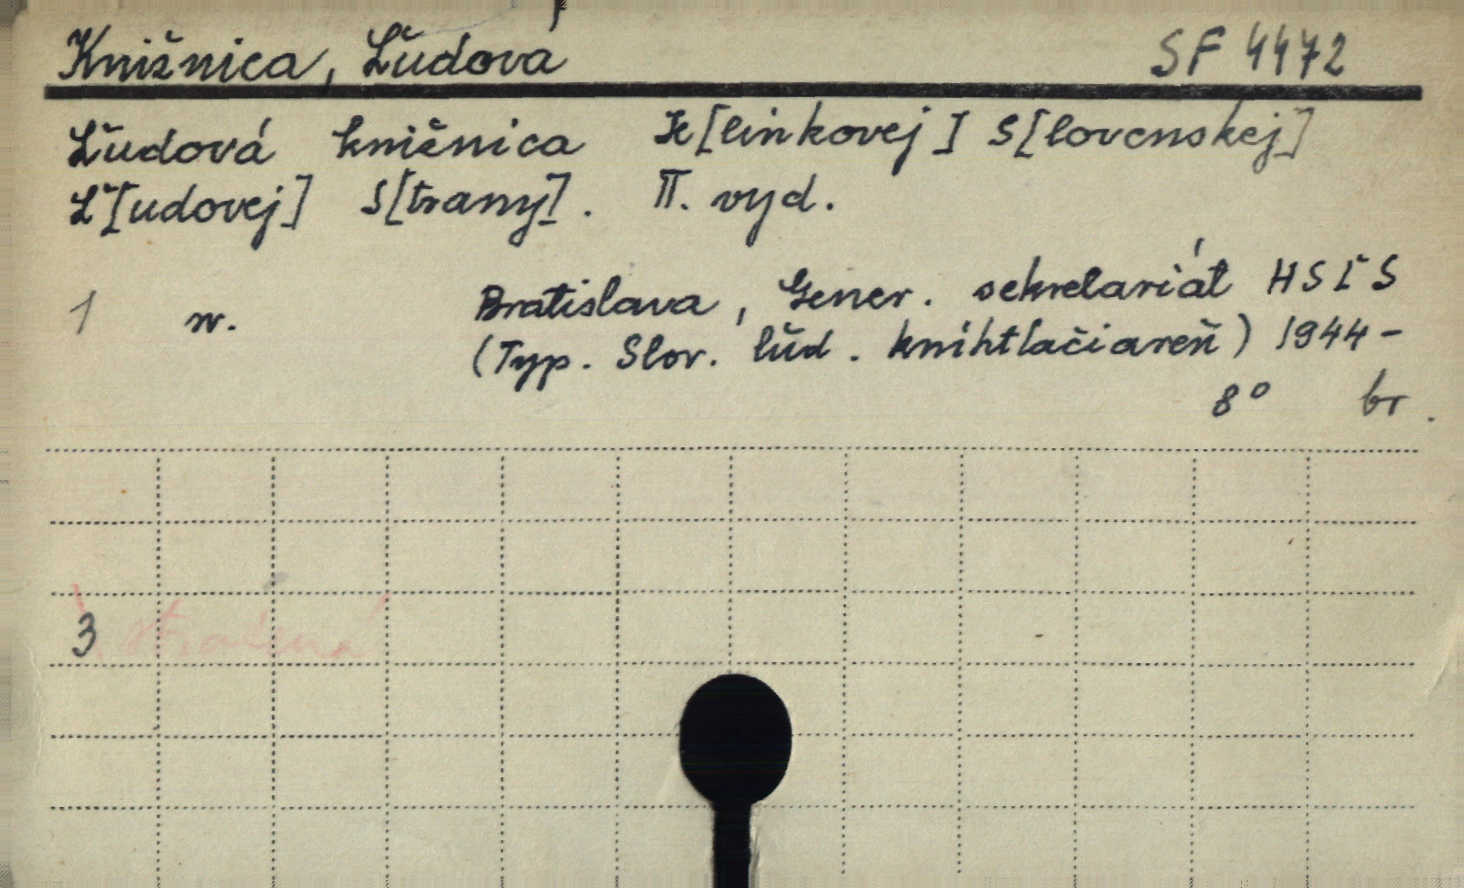 Knižnica, Ľudová SF 4472
Ľudová knižnica H[linkovej] S[lovenskej]
Ľ[udovej] S[trany]. II. vyd.
1 n. Bratislava, Gener. sekretariát HSĽS
(Typ. Slov. ľud. kníhtlačiareň) 1944-
8° br.
3 stratená